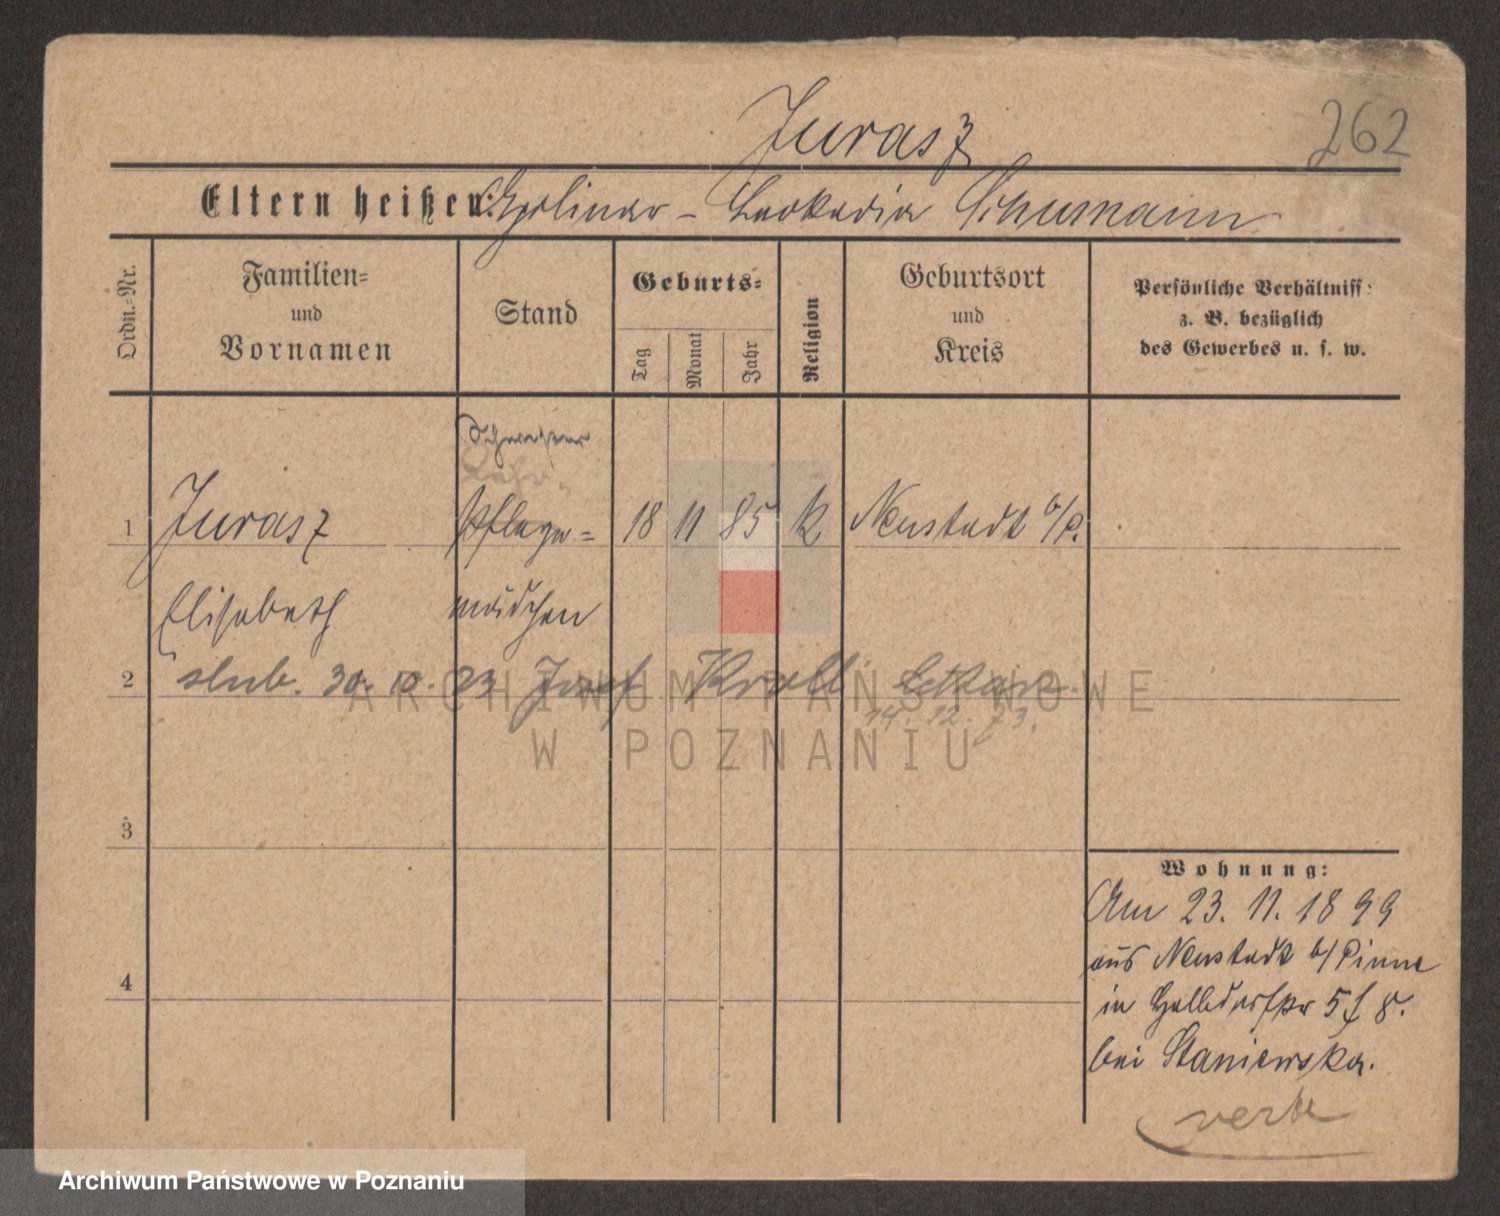 Jurasz
262
Eltern heißen: Apolinar - Leokadia Schumann
Ordn.-Nr.
Familien-
und
Vornamen
Stand
Geburts-
Tag
Monat
Jahr
Religion
Geburtsort
und
Kreis
Persönliche Verhältniss:
z. B. bezüglich
des Gewerbes u. s. w.
1 Jurasz Pflege= 18 11 85 k. Neustadt b/P.
Elisabeth mädchen
2 slub. 30. 10. 23 Josef Kroll
14. 12. 73.
3
4
Wohnung:
Am 23. 11. 1899
aus Neustadt b/Pinne
in Halbdorfstr 5
bei Staniewska.
verh
ARCHIWUM PAŃSTWOWE
W POZNANIU
Archiwum Państwowe w Poznaniu